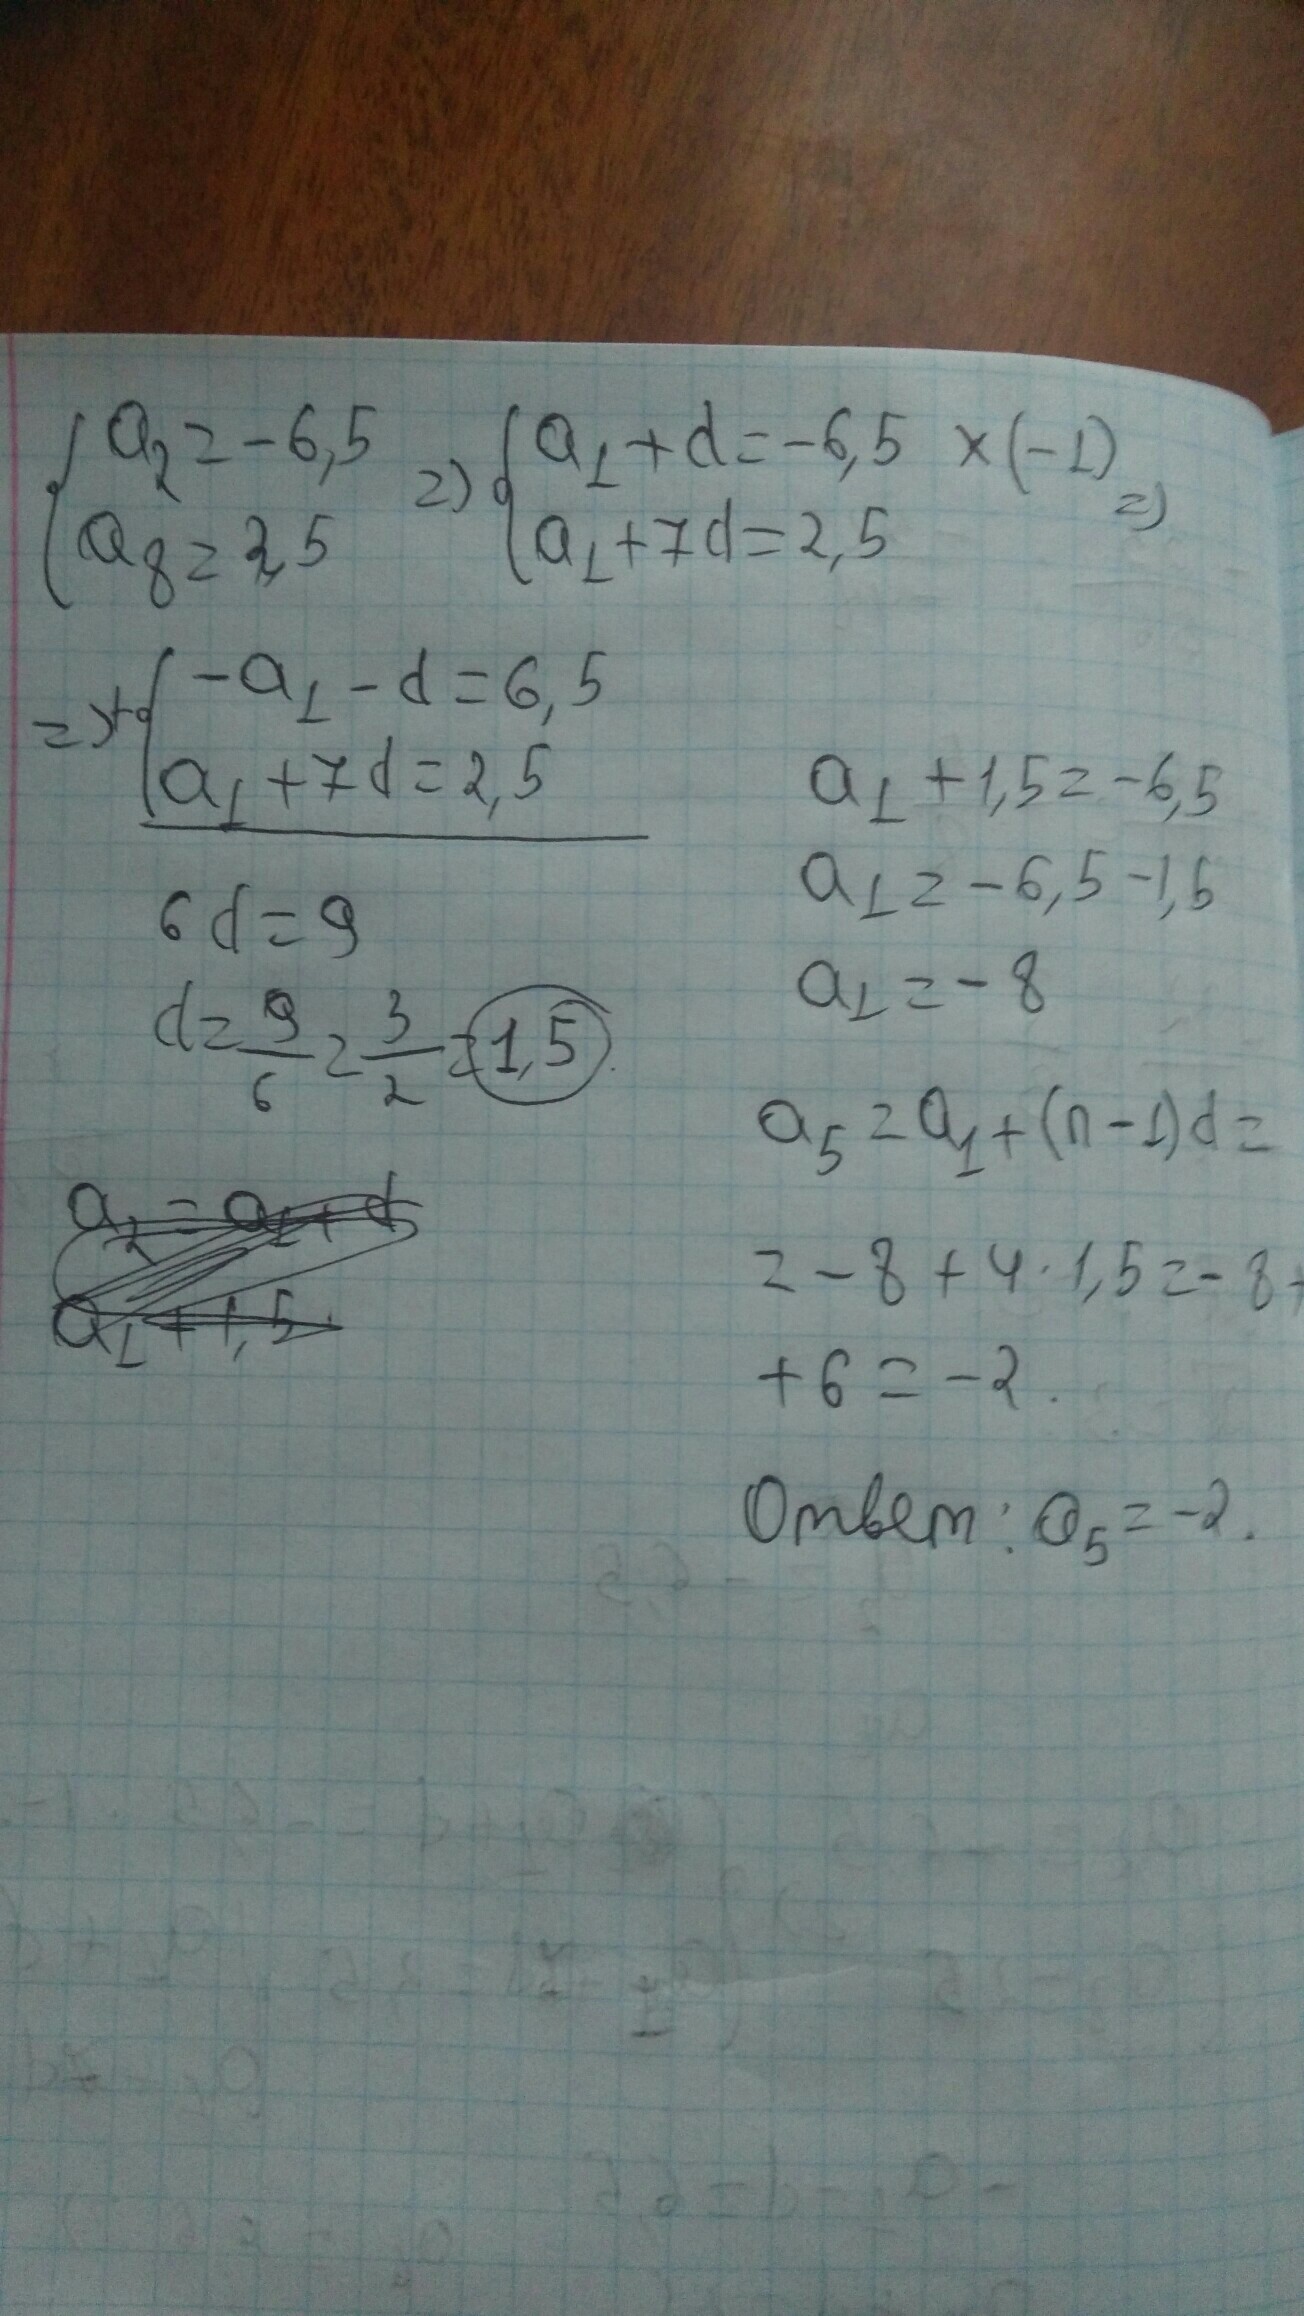 a₂ = -6,5 => a₁ + d = -6,5 × (-1)
a₈ = 2,5 a₁ + 7d = 2,5 =>
=> + -a₁ - d = 6,5
a₁ + 7d = 2,5
6d = 9
d = 9/6 = 3/2 = 1,5
a₂ = a₁ + d
a₁ + 1,5
a₁ + 1,5 = -6,5
a₁ = -6,5 - 1,5
a₁ = -8
a₅ = a₁ + (n - 1)d =
= -8 + 4 · 1,5 = -8 +
+ 6 = -2.
Ответ: a₅ = -2.